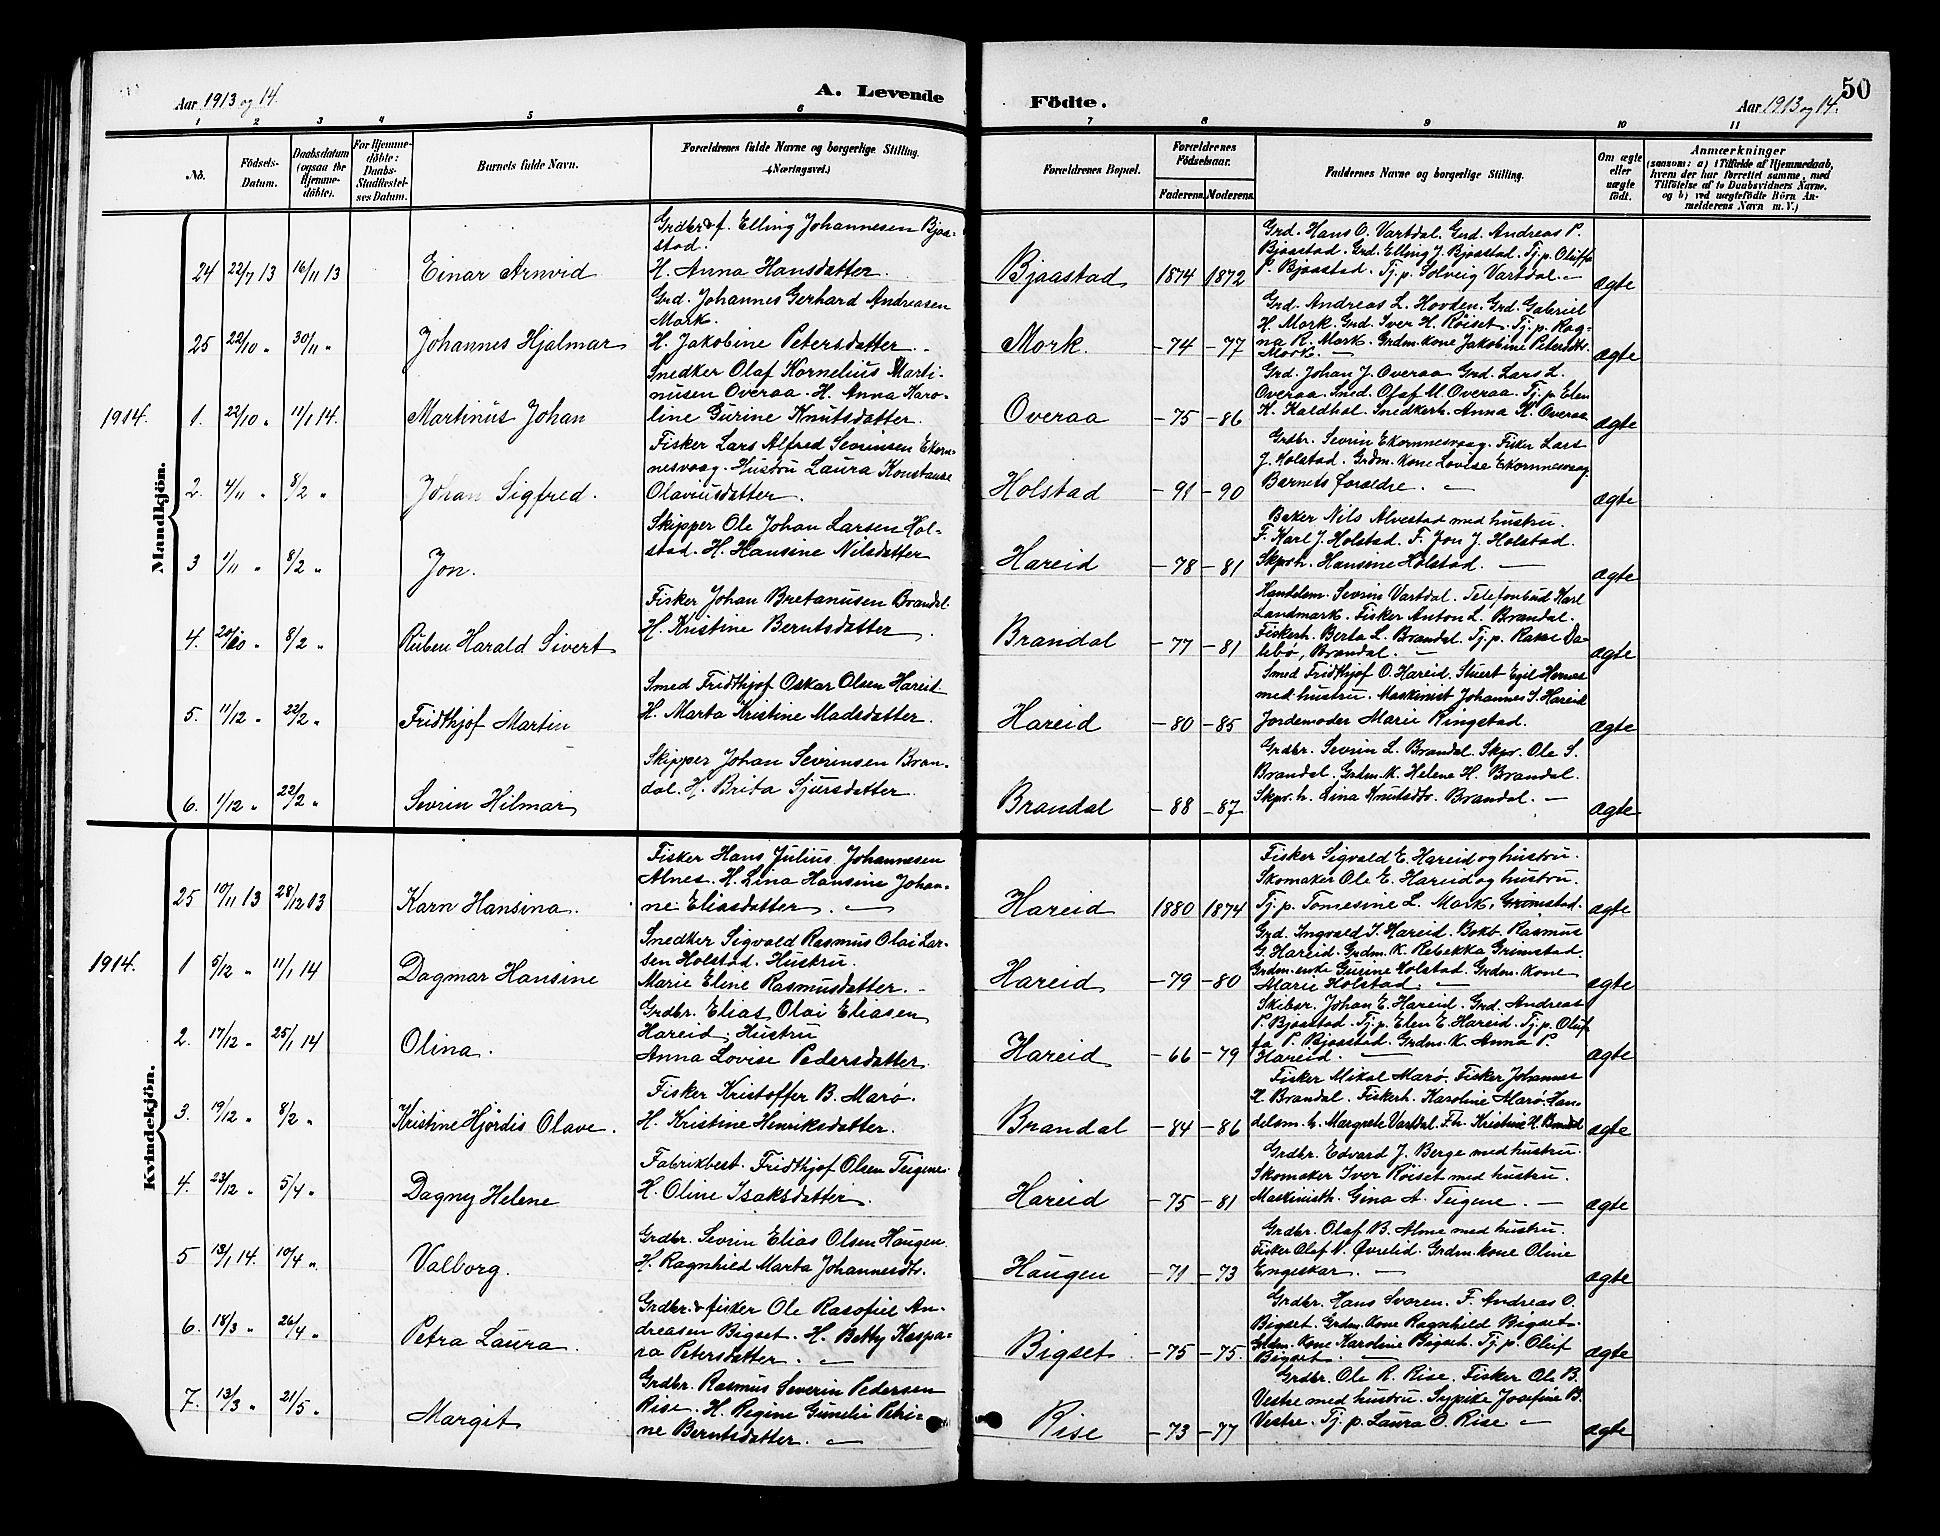 Aar 1913 og 14.
A. Levende
Födte.
Aar 1913 og 14.
50
1 2 3 4 5 6 7 8 9 10 11
No.
Födsels-
Datum.
Daabsdatum
(ogsaa for
Hjemme-
döbte).
For Hjemme-
döbte:
Daabs-
Stadfæstel-
ses Datum.
Barnets fulde Navn.
Forældrenes fulde Navne og borgerlige Stilling.
(Næringsvei.)
Forældrenes Bopæl.
Forældrenes
Födselsaar.
Faderens. Moderens.
Faddernes Navne og borgerlige Stilling.
Om ægte
eller
uægte
födt.
Anmærkninger
(saasom: a) i Tilfælde af Hjemmedaab,
hvem der har forrettet samme, med
Tilföielse af to Daabsvidners Navne.
og b) ved uægtefödte Börn An-
melderens Navn m. V.)
Mandkjön.
24 22/7 13 16/11 13
Einar Arnvid
Grdbr & f. Elling Johannesen Bjaa-
stad.
H. Anna Hansdatter.
Bjaastad 1874 1872
Grd. Hans O. Vartdal. Grd. Andreas P.
Bjaastad. Grd. Elling J. Bjaastad. Tj.p. Oluffa
P. Bjaastad. Tj.p. Solveig Vartdal. —
ægte
25 22/10 „ 30/11 „
Johannes Hjalmar
Grd. Johannes Gerhard Andreasen
Mork.
H. Jakobine Petersdatter.
Mork. -74 -77
Grd. Andreas L. Hovden. Grd. Gabriel
H. Mork. Grd. Iver H. Röiset. Tj.p. Rag-
na R. Mork. Grdm. kone Jakobine Petersdtr.
Mork. —
ægte
1914. 1. 22/10 „ 11/1 14.
Martinus Johan
Snedker Olaf Kornelius Marti-
nusen Overaa. H. Anna Karo-
line Gurine Knutsdatter.
Overaa -75 -86
Grd. Johan J. Overaa. Grd. Lars L.
Overaa. Sned. Olaf M. Overaa. Tj.p. Elen
K. Kaldhol. Snedkerh. Anna K. Overaa
ægte
2. 4/11 „ 8/2 „
Johan Sigfred.
Fisker Lars Alfred Sevrinsen Ekorn-
nesvaag. Hustru Laura Konstanse
Olaviusdatter.
Holstad -91 -90
Grdbr. Sevrin Ekornnesvaag. Fisker Lars
J. Holstad. Grdm. kone Lovise Ekornnesvaag.
Barnets forældre. —
ægte
3 1/11 „ 8/2 „
Jon.
Skipper Ole Johan Larsen Hol-
stad. H. Hansine Nilsdatter
Hareid -78 -81
Baker Nils Alvestad med hustru.
F. Karl J. Holstad. F. Jon J. Holstad.
Skprh. Hansine Holstad. —
ægte
4. 20/10 „ 8/2 „
Ruben Harald Sivert
Fisker Johan Bretanusen Brandal.
H. Kristine Berntsdatter.
Brandal -77 -81
Handelsm. Sevrin Vartdal. Telefonbud Karl
Landmark. Fisker Anton L. Brandal.
Fiskerh. Berta L. Brandal. Tj.p. Da-
lebø, Brandal. —
ægte
5. 11/12 „ 22/2 „
Fridthjof Martin
Smed Fridthjof Oskar Olsen Hareid
H. Marta Kristine Madsdatter.
Hareid -80 -85
Smed Fridthjof O. Hareid. Stuert Egil Hernes
med hustru. Maskinist Johannes S. Hareid
Jordemoder Marie Ringstad.
ægte
6. 1/12 „ 22/2 „
Sevrin Hilmar
Skipper Johan Sevrinsen Bran-
dal. H. Brita Sjursdatter.
Brandal -88 -87
Grdbr. Sevrin L. Brandal. Skpr. Ole S.
Brandal. Grdm.k. Helene H. Brandal.
Skpr. h. Lina Knutsdtr. Brandal. —
ægte
Kvindekjön.
25 10/11 13 28/12 13
Karn Hansina.
Fisker Hans Julius Johannesen
Alnes. H. Lina Hansine Johan-
ne Eliasdatter. —
Hareid 1880 1874
Fisker Sigvald E. Hareid og hustru.
Skomaker Ole E. Hareid og hustru.
Tj.p. Tomesine L. Mork, Grimstad.
ægte
1914. 1 5/12 „ 11/1 14
Dagmar Hansine
Snedker Sigvald Rasmus Olai Lar-
sen Holstad. Hustru.
Marie Elene Rasmusdatter.
Hareid -79 -80
Grd. Ingvald I. Hareid. Bokb. Rasmus
G. Hareid. Grdm. K. Rebekka Grimstad.
Grdm. enke Gurine Holstad. Grdm. kone
Marie Holstad. —
ægte
2. 17/12 „ 25/1 14
Olina.
Grdbr. Elias Olai Eliasen
Hareid. Hustru
Anna Lovise Pedersdatter.
Hareid -66 -79
Skibsr. Johan E. Hareid. Grd. Andreas
P. Bjaastad. Tj.p. Elen E. Hareid. Tj.p. Oluf-
fa P. Bjaastad. Grdm. K. Anna P.
Hareid. —
ægte
3. 19/12 „ 8/2 „
Kristine Hjørdis Olave.
Fisker Kristoffer B. Marø.
H. Kristine Henriksdatter.
Brandal -84 -86
Fisker Mikal Marø. Fisker Johannes
H. Brandal. Fiskerh. Karoline Marø. Han-
delsm. h. Margrete Vartdal. Fh. Kristine H. Brandal
ægte
4. 23/12 „ 5/4 „
Dagny Helene
Fabrikbest. Fridthjof Olsen Teigene.
H. Oline Isaksdatter.
Hareid -75 -81
Grdbr. Edvard J. Berge med hustru.
Skomaker Iver Röiset med hustru.
Maskinisth. Gina A. Teigene. —
ægte
5 13/1 14. 10/4 „
Valborg.
Grdbr. Sevrin Elias Olsen Haugen.
H. Ragnhild Marta Johannesdtr.
Haugen -71 -73
Grdbr. Olaf B. Alme med hustru.
Fisker Olaf N. Øvrelid. Grdm. kone Oline
Engeskar. —
ægte
6. 18/3 „ 26/4 „
Petra Laura.
Grdbr. & fisker Ole Rasofiel An-
dreasen Bigset. H. Betty Kaspa-
ra Petersdatter. —
Bigset. -75 -75.
Grdbr. Hans Svoren. F. Andreas O.
Bigset. Grdm. kone Ragnhild Bigset.
Grdm. kone Karoline Bigset. Tj.p. Oluf
Bigset. —
ægte
7. 13/3 „ 21/5 „
Margit
Grdbr. Rasmus Severin Pedersen
Rise. H. Regine Gunelie Petri-
ne Berntsdatter. —
Rise -73 -77
Grdbr. Ole R. Rise. Fisker Ole B.
Vestre med hustru. Sypike Josefine B.
Vestre. Tj.p. Laura O. Rise —
ægte